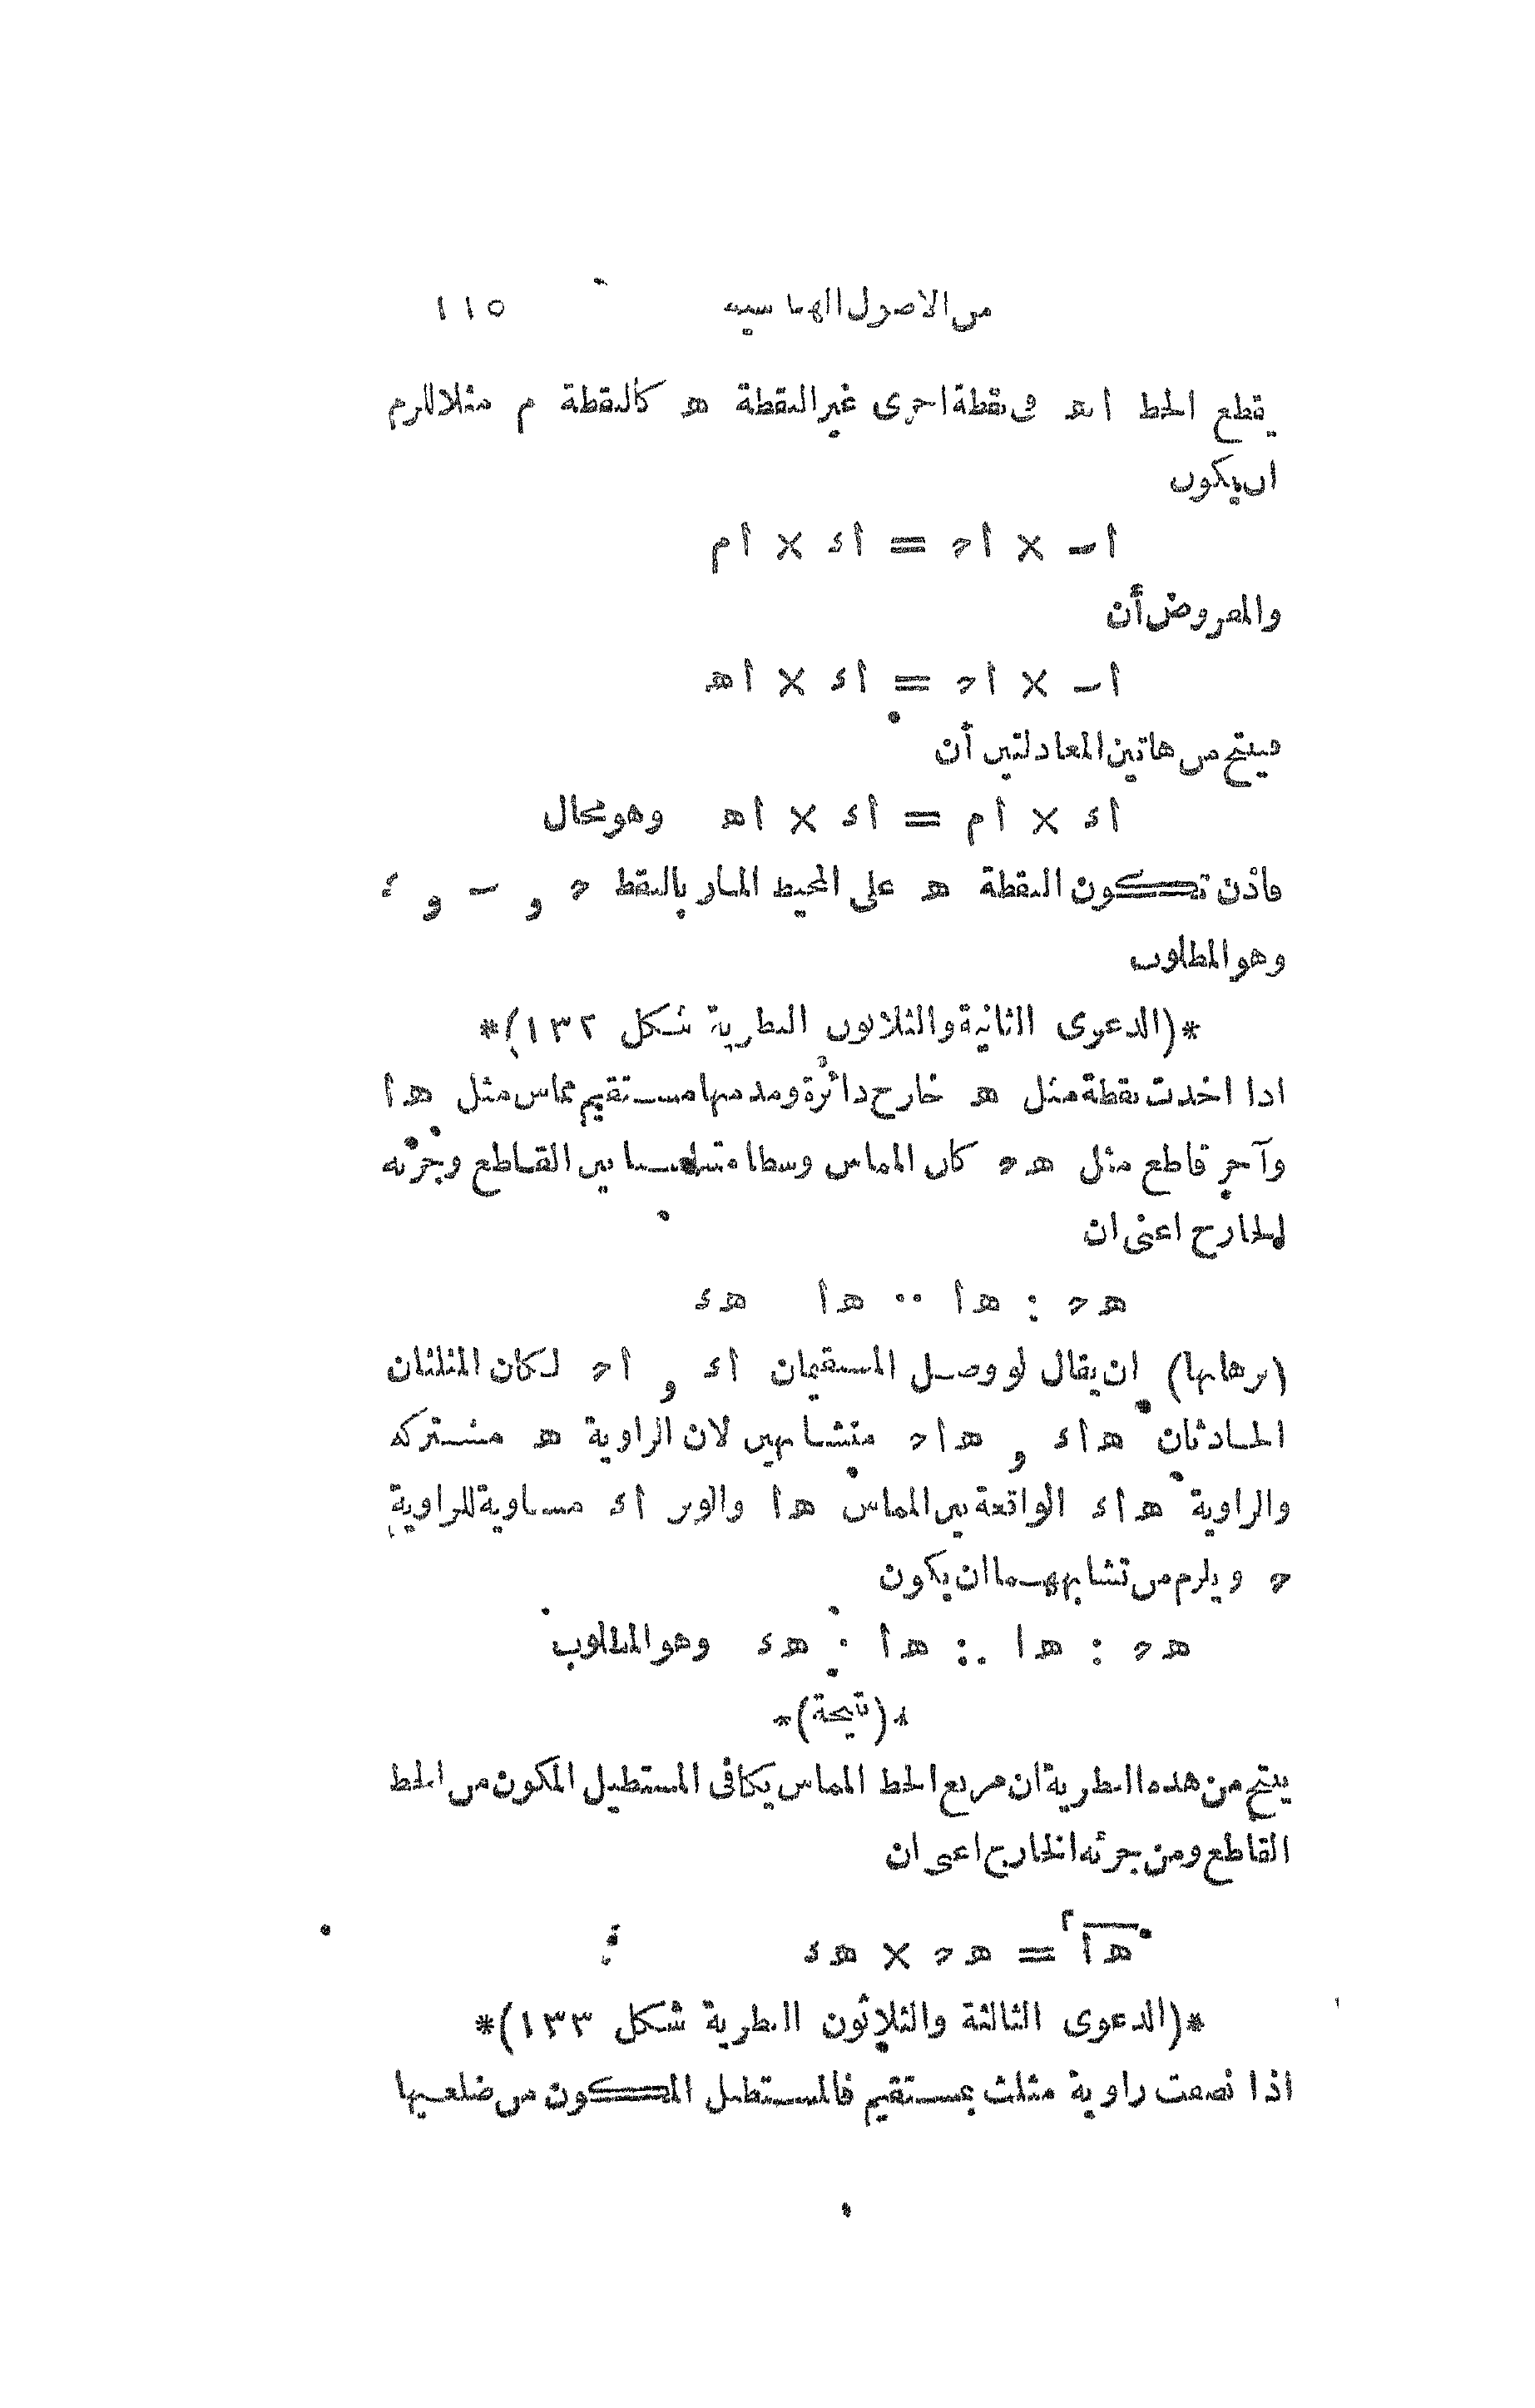 من الاصول الهندسيه ١١٥
يقطع الخط اهـ فى نقطة اخرى غير النقطة هـ كالنقطة م مثلا للزم
ان يكون
أب × أح = أء × أم
والمفروض أن
أب × أح = أء × أهـ
فينتج من هاتين المعادلتين أن
أء × أم = أء × أهـ وهو محال
فاذن تكون النقطة هـ على المحيط المار بالنقط ح و ب و ء
وهو المطلوب
*(الدعوى الثانية والثلاثون النظرية شكل ١٣٢)*
اذا اخذت نقطة مثل هـ خارج دائرة ومد منها مستقيم مماس مثل هـأ
وآخر قاطع مثل هـح كان المماس وسطا متناسبا بين القاطع وجزئه
الخارج اعنى ان
هـح : هـأ :: هـأ هـء
(برهانها) ان يقال لو وصل المستقيمان أء و أح لكان المثلثان
الحادثان هـأء و هـأح متشابهين لان الزاوية هـ مشتركه
والزاوية هـأء الواقعة بين المماس هـأ والوتر أء مساوية للزاوية
ح ويلزم من تشابههما ان يكون
هـح : هـا :: هـأ : هـء وهو المطلوب
*(نتيجة)*
ينتج من هذه النظرية ان مربع الخط المماس يكافئ المستطيل المكون من الخط
القاطع ومن جزئه الخارج اعنى ان
هـأ٢ = هـح × هـء
*(الدعوى الثالثة والثلاثون النظرية شكل ١٣٣)*
اذا نصفت زاوية مثلث بمستقيم فالمستطيل المكون من ضلعيها